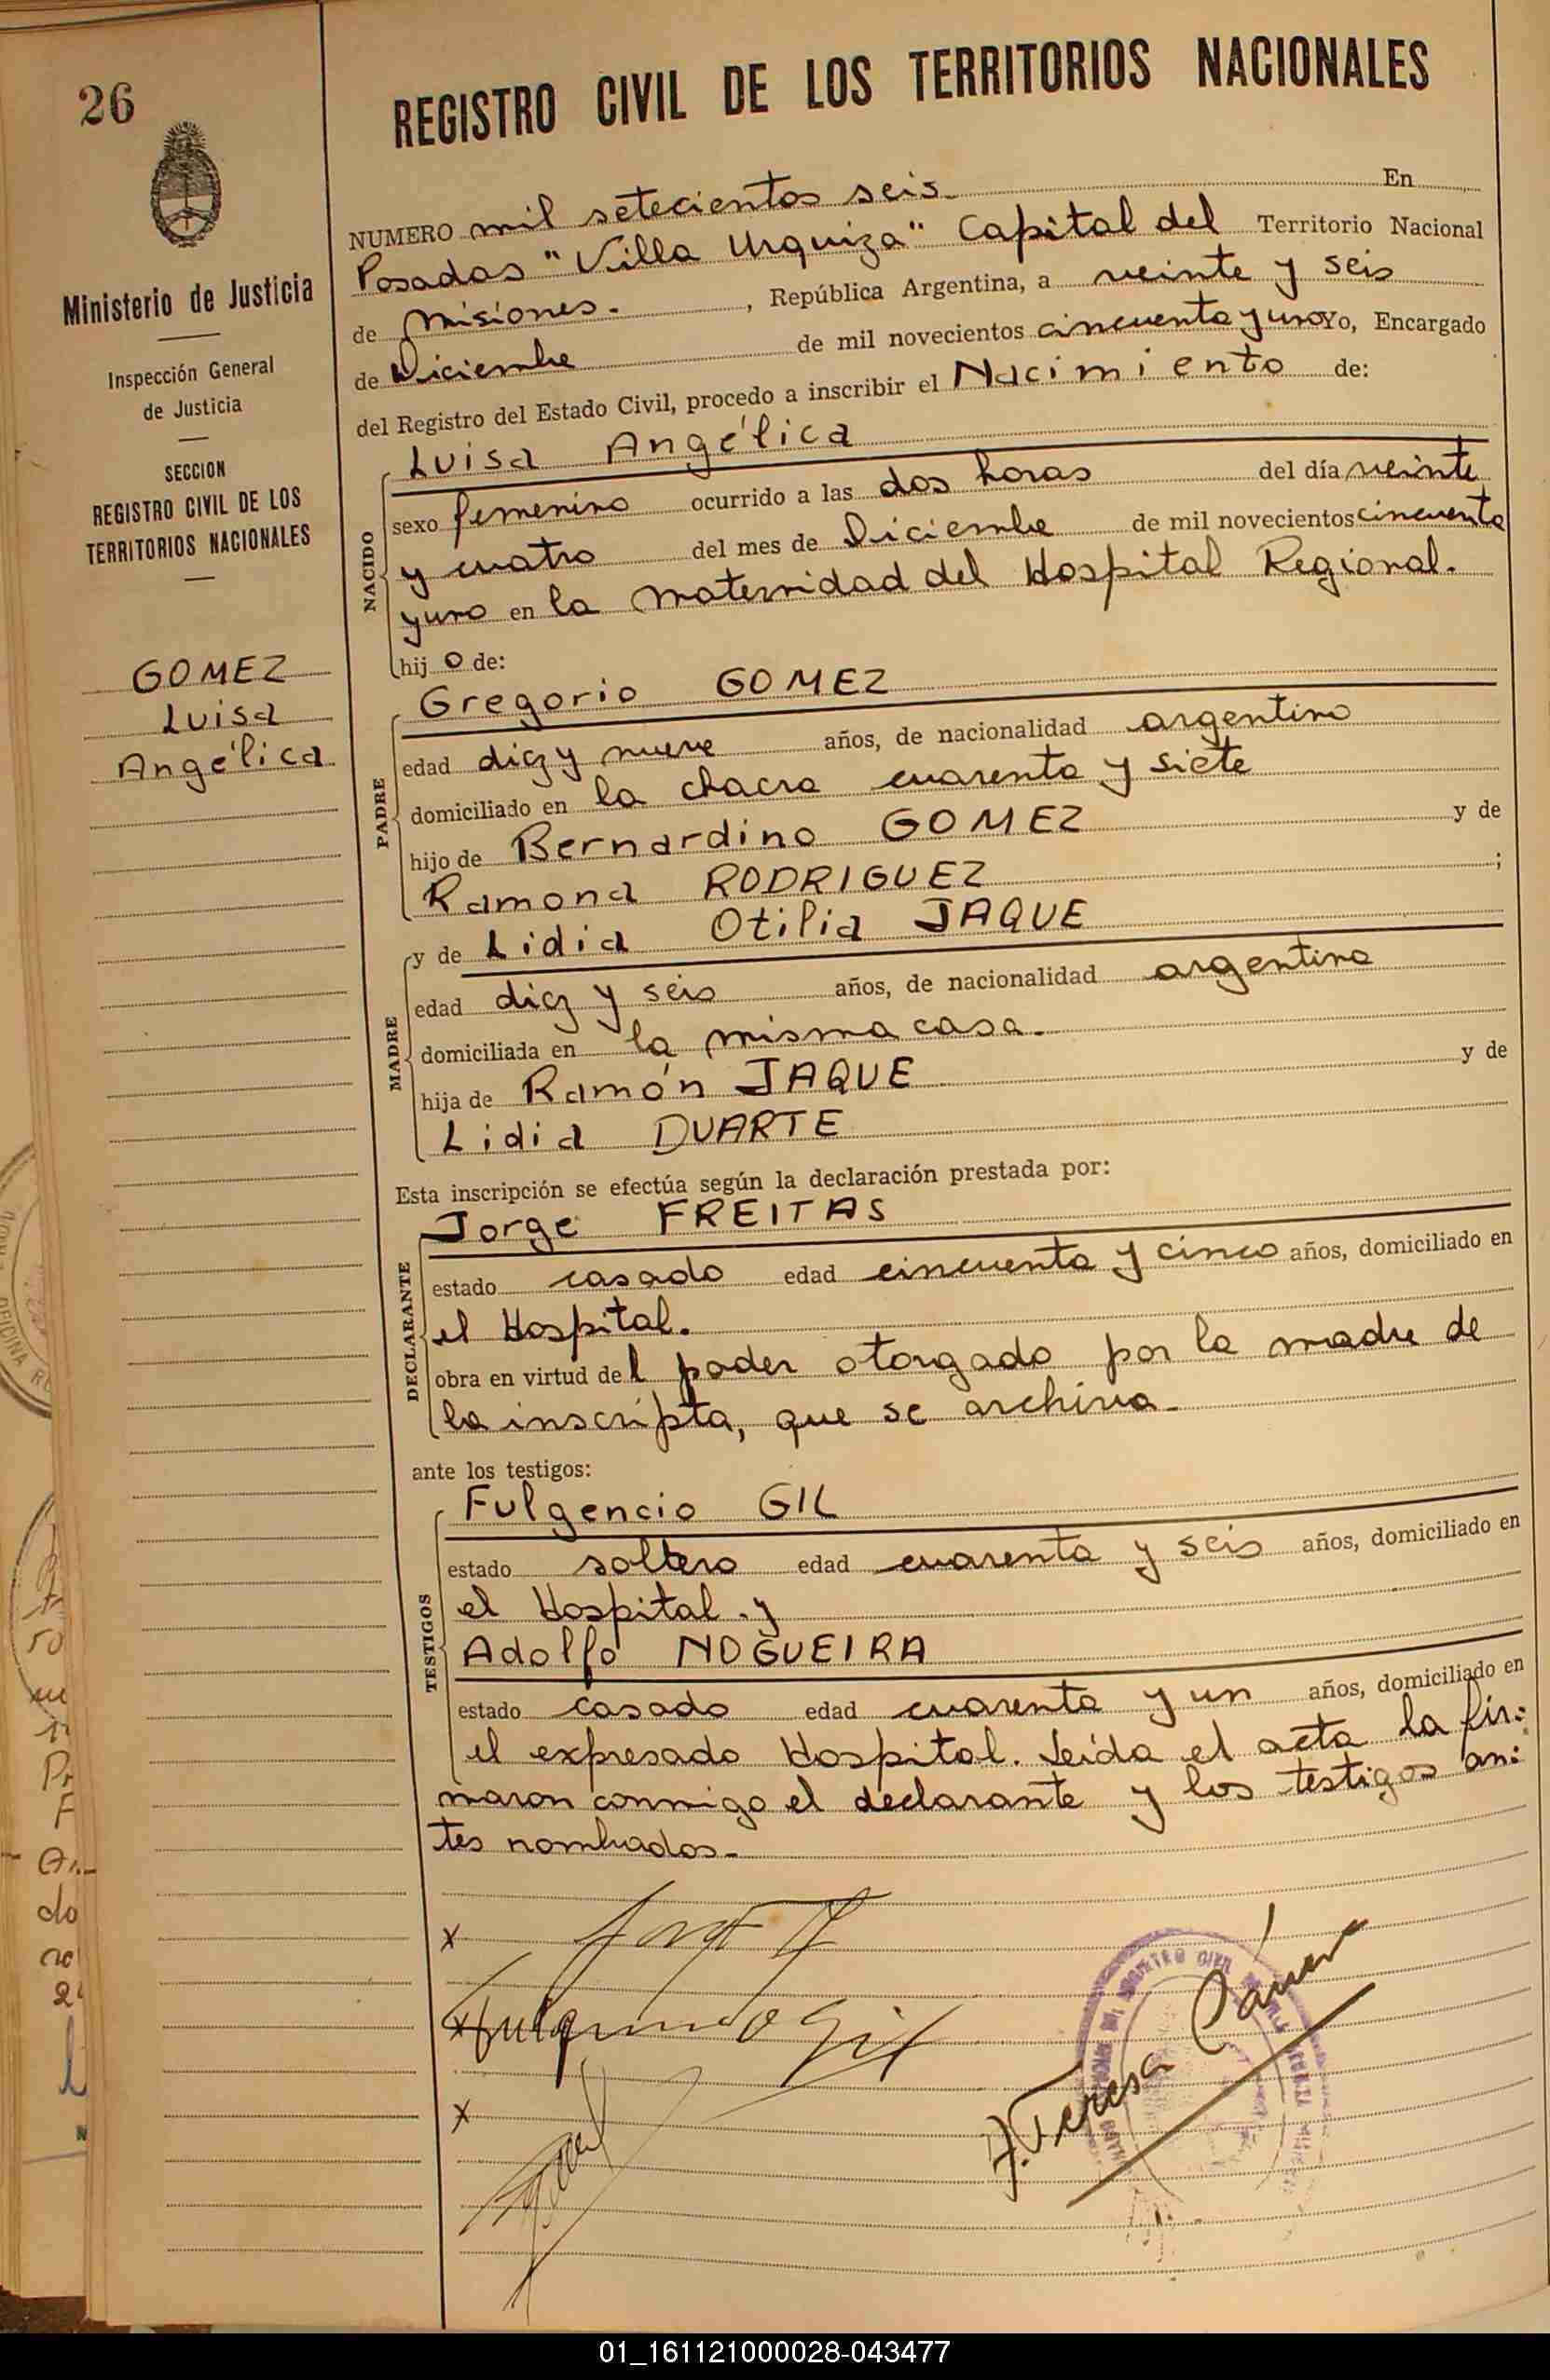 26
REGISTRO CIVIL DE LOS TERRITORIOS NACIONALES
Ministerio de Justicia
Inspección General
de Justicia
SECCION
REGISTRO CIVIL DE LOS
TERRITORIOS NACIONALES
GOMEZ
Luisa
Angélica
NUMERO mil setecientos seis. En
Posadas "Villa Urquiza" Capital del Territorio Nacional
de Misiones. , República Argentina, a veinte y seis
de Diciembre de mil novecientos cincuenta y uno Yo, Encargado
del Registro del Estado Civil, procedo a inscribir el Nacimiento de:
Luisa Angélica
NACIDO
sexo femenino ocurrido a las dos horas del día veinte
y cuatro del mes de Diciembre de mil novecientos cincuenta
y uno en la maternidad del Hospital Regional.
hij o de:
Gregorio GOMEZ
PADRE
edad diez y nueve años, de nacionalidad argentino
domiciliado en la chacra cuarenta y siete
hijo de Bernardino GOMEZ y de
Ramona RODRIGUEZ ;
y de Lidia Otilia JAQUE
MADRE
edad diez y seis años, de nacionalidad argentina
domiciliada en la misma casa.
hija de Ramón JAQUE y de
Lidia DUARTE
Esta inscripción se efectúa según la declaración prestada por:
Jorge FREITAS
DECLARANTE
estado casado edad cincuenta y cinco años, domiciliado en
el Hospital.
obra en virtud del poder otorgado por la madre de
la inscripta, que se archiva.
ante los testigos:
Fulgencio GIL
TESTIGOS
estado soltero edad cuarenta y seis años, domiciliado en
el Hospital. y
Adolfo NOGUEIRA
estado casado edad cuarenta y un años, domiciliado en
el expresado Hospital. Leída el acta la fir:
maron conmigo el declarante y los testigos an:
tes nombrados.
x
x Fulgencio Gil
x
J. Teresa Cámera
01_161121000028-043477